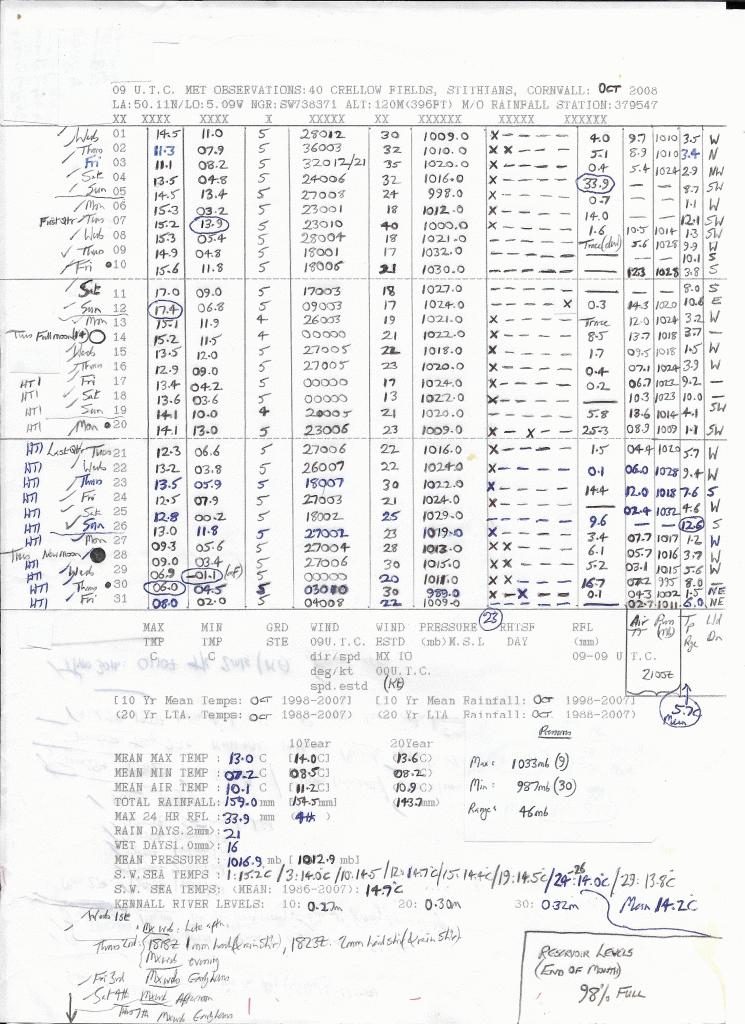 09 U.T.C. MET OBSERVATIONS:40 CRELLOW FIELDS, STITHIANS, CORNWALL: OCT 2008
LA:50.11N/LO:5.09W NGR:SW738371 ALT:120M(396FT) M/O RAINFALL STATION:379547
XX XXXX XXXX X XXXXX XX XXXXXX XXXXX XXXXXX
Weds 01 14.5 11.0 5 28012 30 1009.0 X - - - - 4.0 9.7 1010 3.5 W
Thurs 02 11.3 07.9 5 36003 32 1010.0 XX - - - 5.1 8.9 1010 3.4 N
Fri 03 11.1 08.2 5 32012/21 35 1020.0 X - - - - 0.4 5.4 1024 2.9 NW
Sat 04 13.5 04.8 5 24006 32 1016.0 X - - - - 33.9 — — 8.7 SW
Sun 05 14.5 13.4 5 27008 24 998.0 X - - - - 0.7 1.1 W
Mon 06 15.3 03.2 5 23001 18 1012.0 - - - - - 14.0 12.1 SW
First Qtr Tues 07 15.2 13.9 5 23010 40 1000.0 X - - - - 1.6 10.5 1014 1.3 SW
Weds 08 15.3 05.4 5 28004 18 1021.0 - - - - - Trace(dew) 5.6 1028 9.9 W
Thurs 09 14.9 04.8 5 18001 17 1032.0 - - - - - — 10.1 S
Fri 10 15.6 11.8 5 18006 21 1030.0 - - - - - — 12.3 1028 3.8 S
Sat 11 17.0 09.0 5 17003 18 1027.0 - - - - - — 8.0 S
Sun 12 17.4 06.8 5 09003 17 1024.0 - - - - X 0.3 14.3 1020 10.6 E
Mon 13 15.1 11.9 4 26003 19 1021.0 X - - - - Trace 12.0 1024 3.2 W
Tues Full moon (14) 14 15.2 11.5 4 00000 21 1022.0 X - - - - 8.5 13.7 1018 3.7 —
Weds 15 13.5 12.0 5 27005 22 1018.0 X - - - - 1.7 09.5 1018 1.5 W
Thurs 16 12.9 09.0 5 27005 23 1020.0 X - - - - 0.4 07.1 1024 3.9 W
HTI Fri 17 13.4 04.2 5 00000 17 1024.0 X - - - - 0.2 06.7 1023 9.2 —
HTI Sat 18 13.6 03.6 5 00000 13 1022.0 X - - - - 10.3 1023 10.0 —
HTI Sun 19 14.1 10.0 4 20005 21 1020.0 - - - - - 5.8 13.6 1014 4.1 SW
HTI Mon 20 14.1 13.0 5 23006 23 1009.0 X - X - - 25.3 08.9 1009 1.1 SW
HTI Last Qtr Tues 21 12.3 06.6 5 27006 22 1016.0 X - - - - 1.5 04.4 1020 5.7 W
HTI Weds 22 13.2 03.8 5 26007 22 1024.0 X - - - - 0.1 06.0 1028 9.4 W
HTI Thurs 23 13.5 05.9 5 18007 30 1022.0 X - - - - 14.4 12.0 1018 7.6 S
HTI Fri 24 12.5 07.9 5 27003 21 1024.0 X - - - - — 02.4 1032 4.6 W
HTI Sat 25 12.8 00.2 5 18002 25 1029.0 - - - - - 9.6 — — 12.6 S
HTI Sun 26 13.0 11.8 5 27002 23 1019.0 X - - - - 3.4 07.7 1017 1.2 W
HTI Mon 27 09.3 05.6 5 27004 28 1013.0 XX - - - 6.1 05.7 1016 3.7 W
Tues New moon 28 09.0 03.4 5 27006 30 1015.0 XX - - - 5.2 03.1 1015 5.6 W
HTI Weds 29 06.9 -01.1 5 00000 20 1011.0 XX - - - 16.7 995 8.0 —
HTI Thurs 30 06.0 04.5 5 03010 30 989.0 X - X - - 0.1 04.3 1002 1.5 NE
HTI Fri 31 08.0 02.0 5 04008 22 1009.0 - - - - - — 02.7 1011 6.0 NE
MAX MIN GRD WIND WIND PRESSURE (23) RHTSF RFL Air Press
TMP TMP STE 09U.T.C. ESTD (mb)M.S.L DAY (mm) (mb)
C C dir/spd MX IO 09-09 U.T.C.
deg/kt 00U.T.C. 2105Z
spd.estd (KE)
[10 Yr Mean Temps: OCT 1998-2007] [10 Yr Mean Rainfall: OCT 1998-2007]
(20 Yr LTA. Temps: OCT 1988-2007) (20 Yr LTA Rainfall: OCT 1988-2007)
5.7c Mean
10Year 20Year Pressures
MEAN MAX TEMP : 13.0 C [14.0C] (13.6 C)
MEAN MIN TEMP : 07.2 C [08.5C] (08.2C)
MEAN AIR TEMP : 10.1 C [11.2C] (10.9 C)
TOTAL RAINFALL: 159.0 mm [154.5mm] (143.7mm)
Max: 1033mb (9)
Min: 987mb (30)
Range: 46mb
MAX 24 HR RFL : 33.9 mm (4th)
RAIN DAYS.2mm): 21
WET DAYS1.0mm): 16
MEAN PRESSURE : 1016.9 mb [1012.9 mb]
S.W.SEA TEMPS : 1:15.2c / 3:14.0c / 10:14.5 / 12:14.7c / 15:14.4c / 19:14.5c / 24-26:14.0c / 29:13.8c
S.W. SEA TEMPS: (MEAN: 1986-2007): 14.9c
KENNALL RIVER LEVELS: 10: 0.27m 20: 0.30m 30: 0.32m Mean 14.2c
Weds 1st
Mx wds: Late aftn.
Thurs 2nd: 1818Z 1mm hail (& rain Shr), 1823Z 2mm hail (& rain Shr)
Mx wds evening
Fri 3rd Mx wds Early hours
Sat 4th Mx wds Afternoon
Tues 7th Mx wds Early hours
RESERVOIR LEVELS
(END OF MONTH)
98% FULL